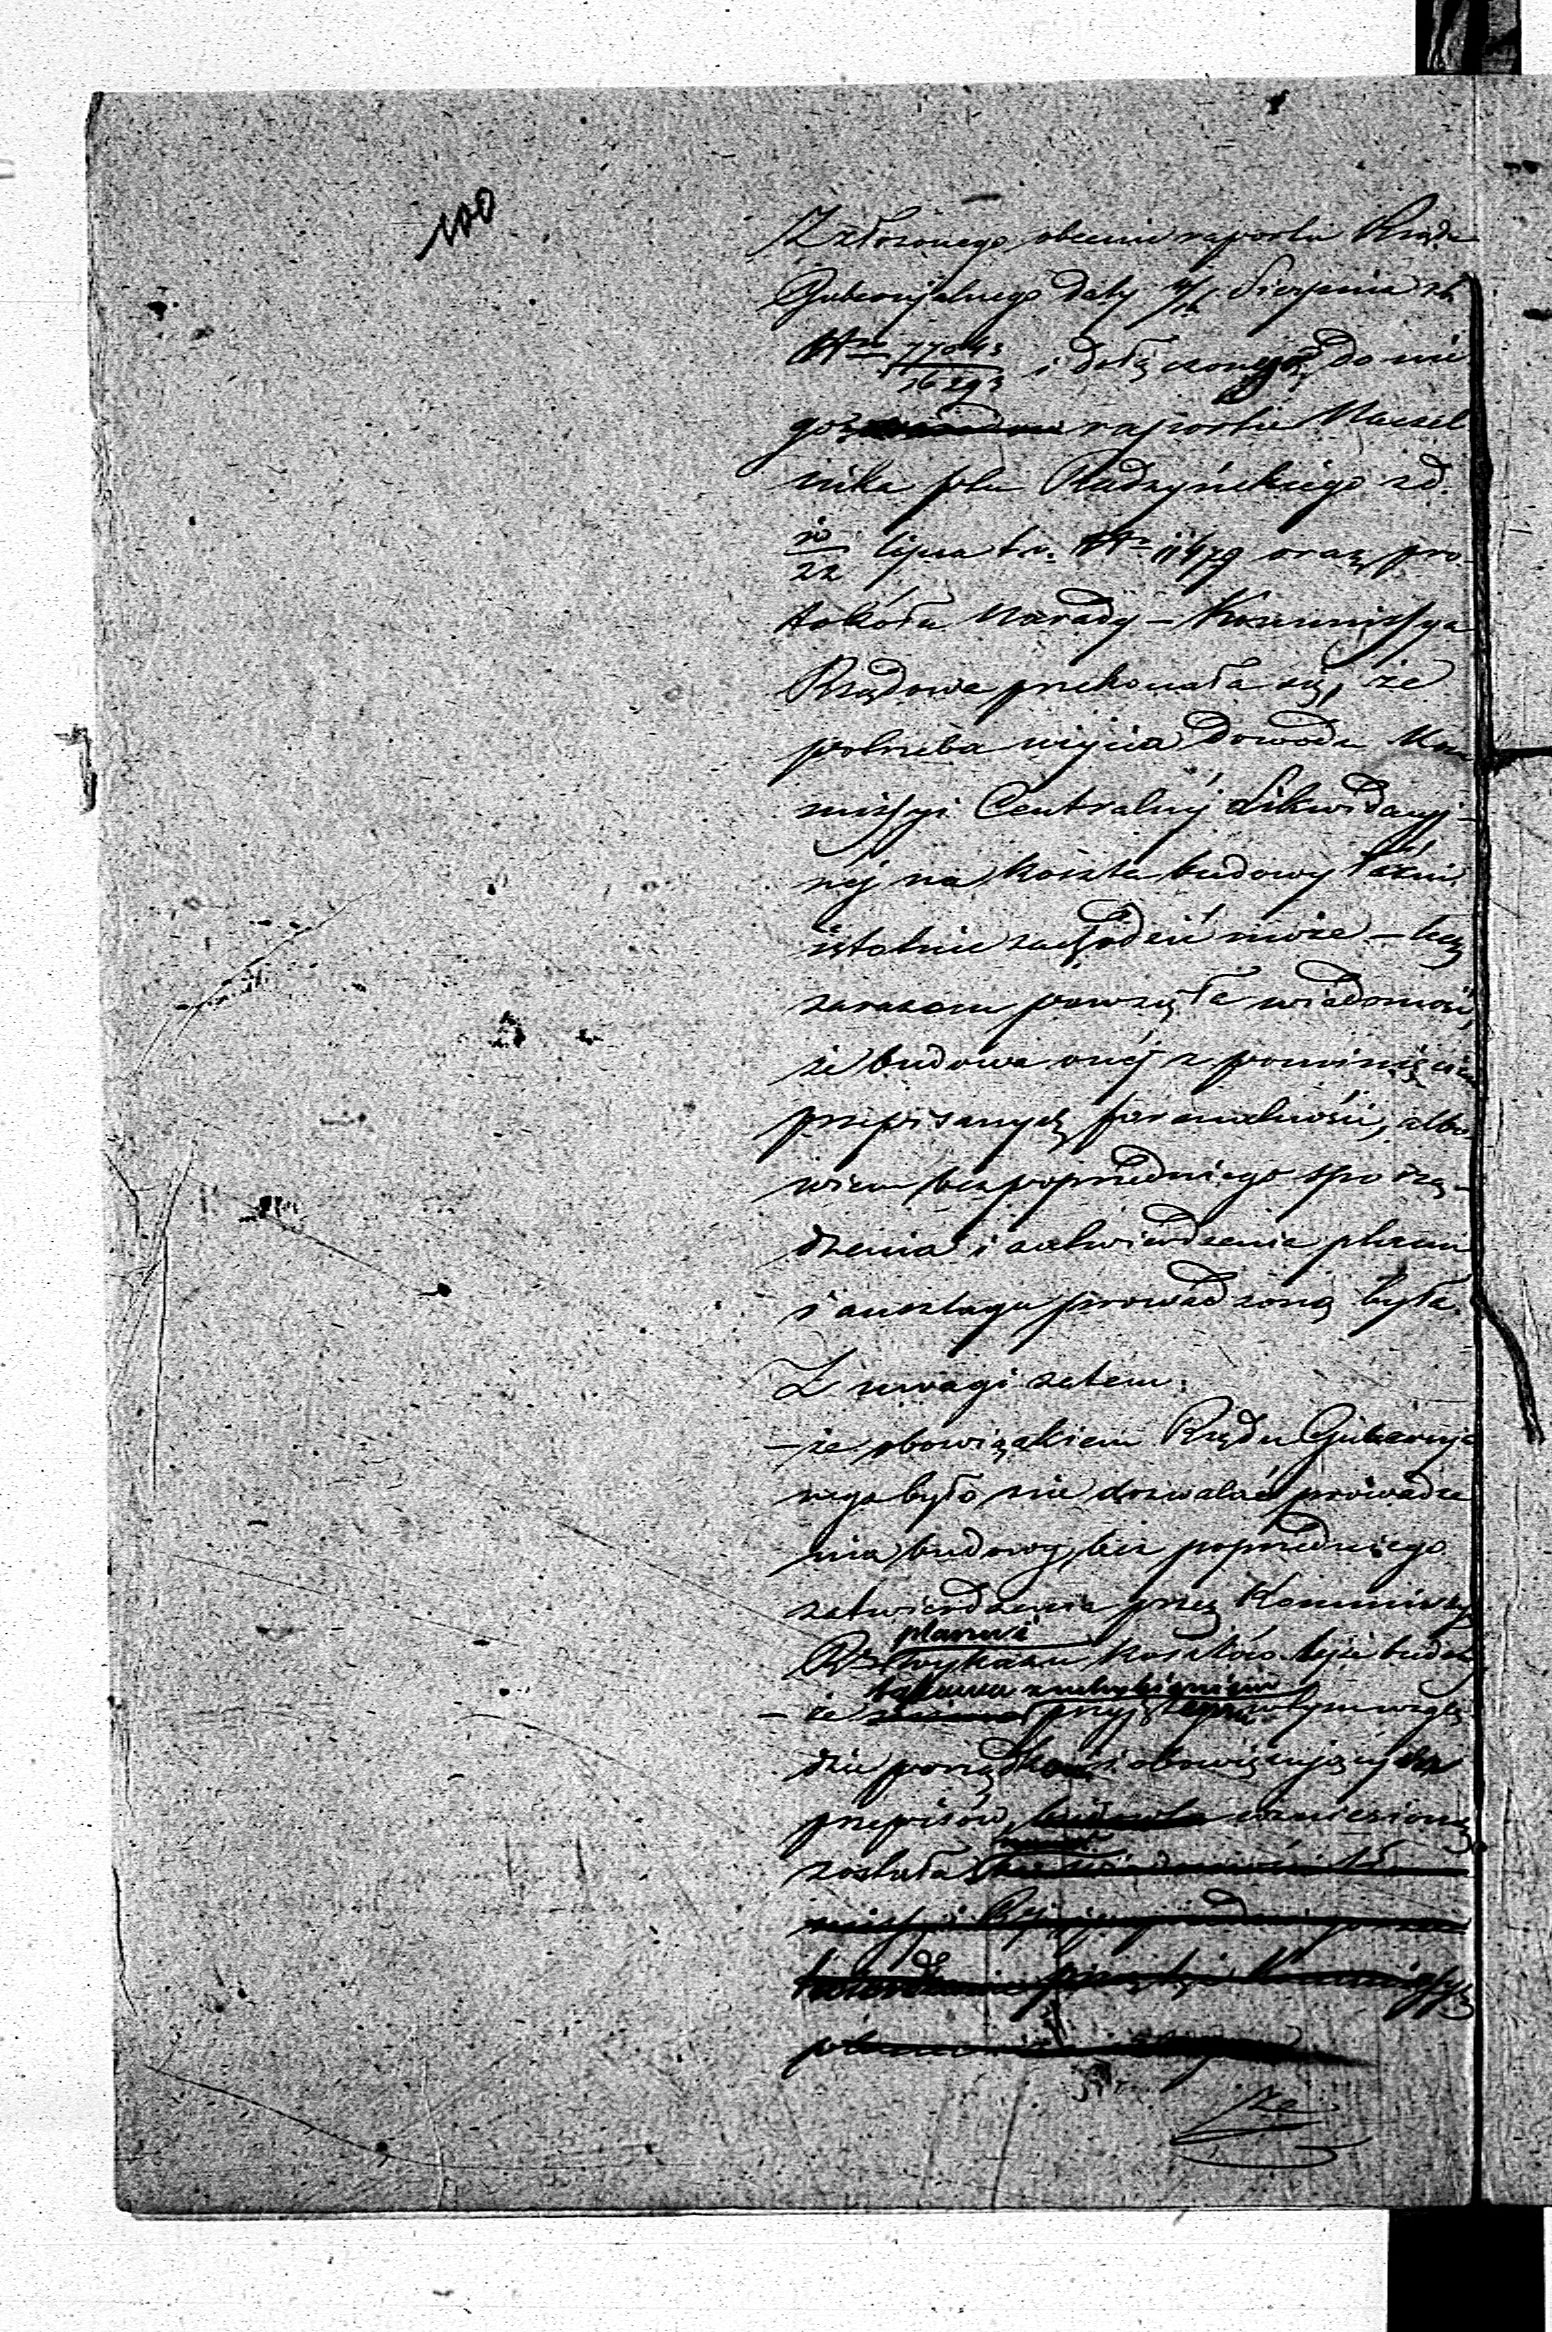 100
Z złożonego obecnie raportu Rządu
Gubernijalnego daty 4/ Sierpnia r b
Nr 77043/16293 i dołączonego do nie
go raportu Naczel
nika ptu Radzyńskiego z d.
10/22 lipca t. r. Nr 11479 oraz pro-
tokółu Narady – Kommissya
Rządowa przekonała się, że
potrzeba użycia dowodu Kom
missyi Centralnej Likwidacyj-
nej na koszta budowy łaźni
istotnie zachodzić może – lecz
zarazem powzięła wiadomość,
że budowa onej z pominięciem
przepisanych formalności, albo-
wiem bez poprzedniego sporzą-
dzenia i zatwierdzenia planu
i anszlagu prowadzoną była.
Z uwagi zatem:
– że obowiązkiem Rządu Gubernija
nego było nie dozwalać prowadze
nia budowy bez poprzedniego
zatwierdzenia przez Kommissyę
planu i
Rz wykazu kosztów tejże budowy
z uchybieniem
– że przyjętego w tym wzglę
dzie porządku i obowiązujących
przepisów wzniesioną
została
ze